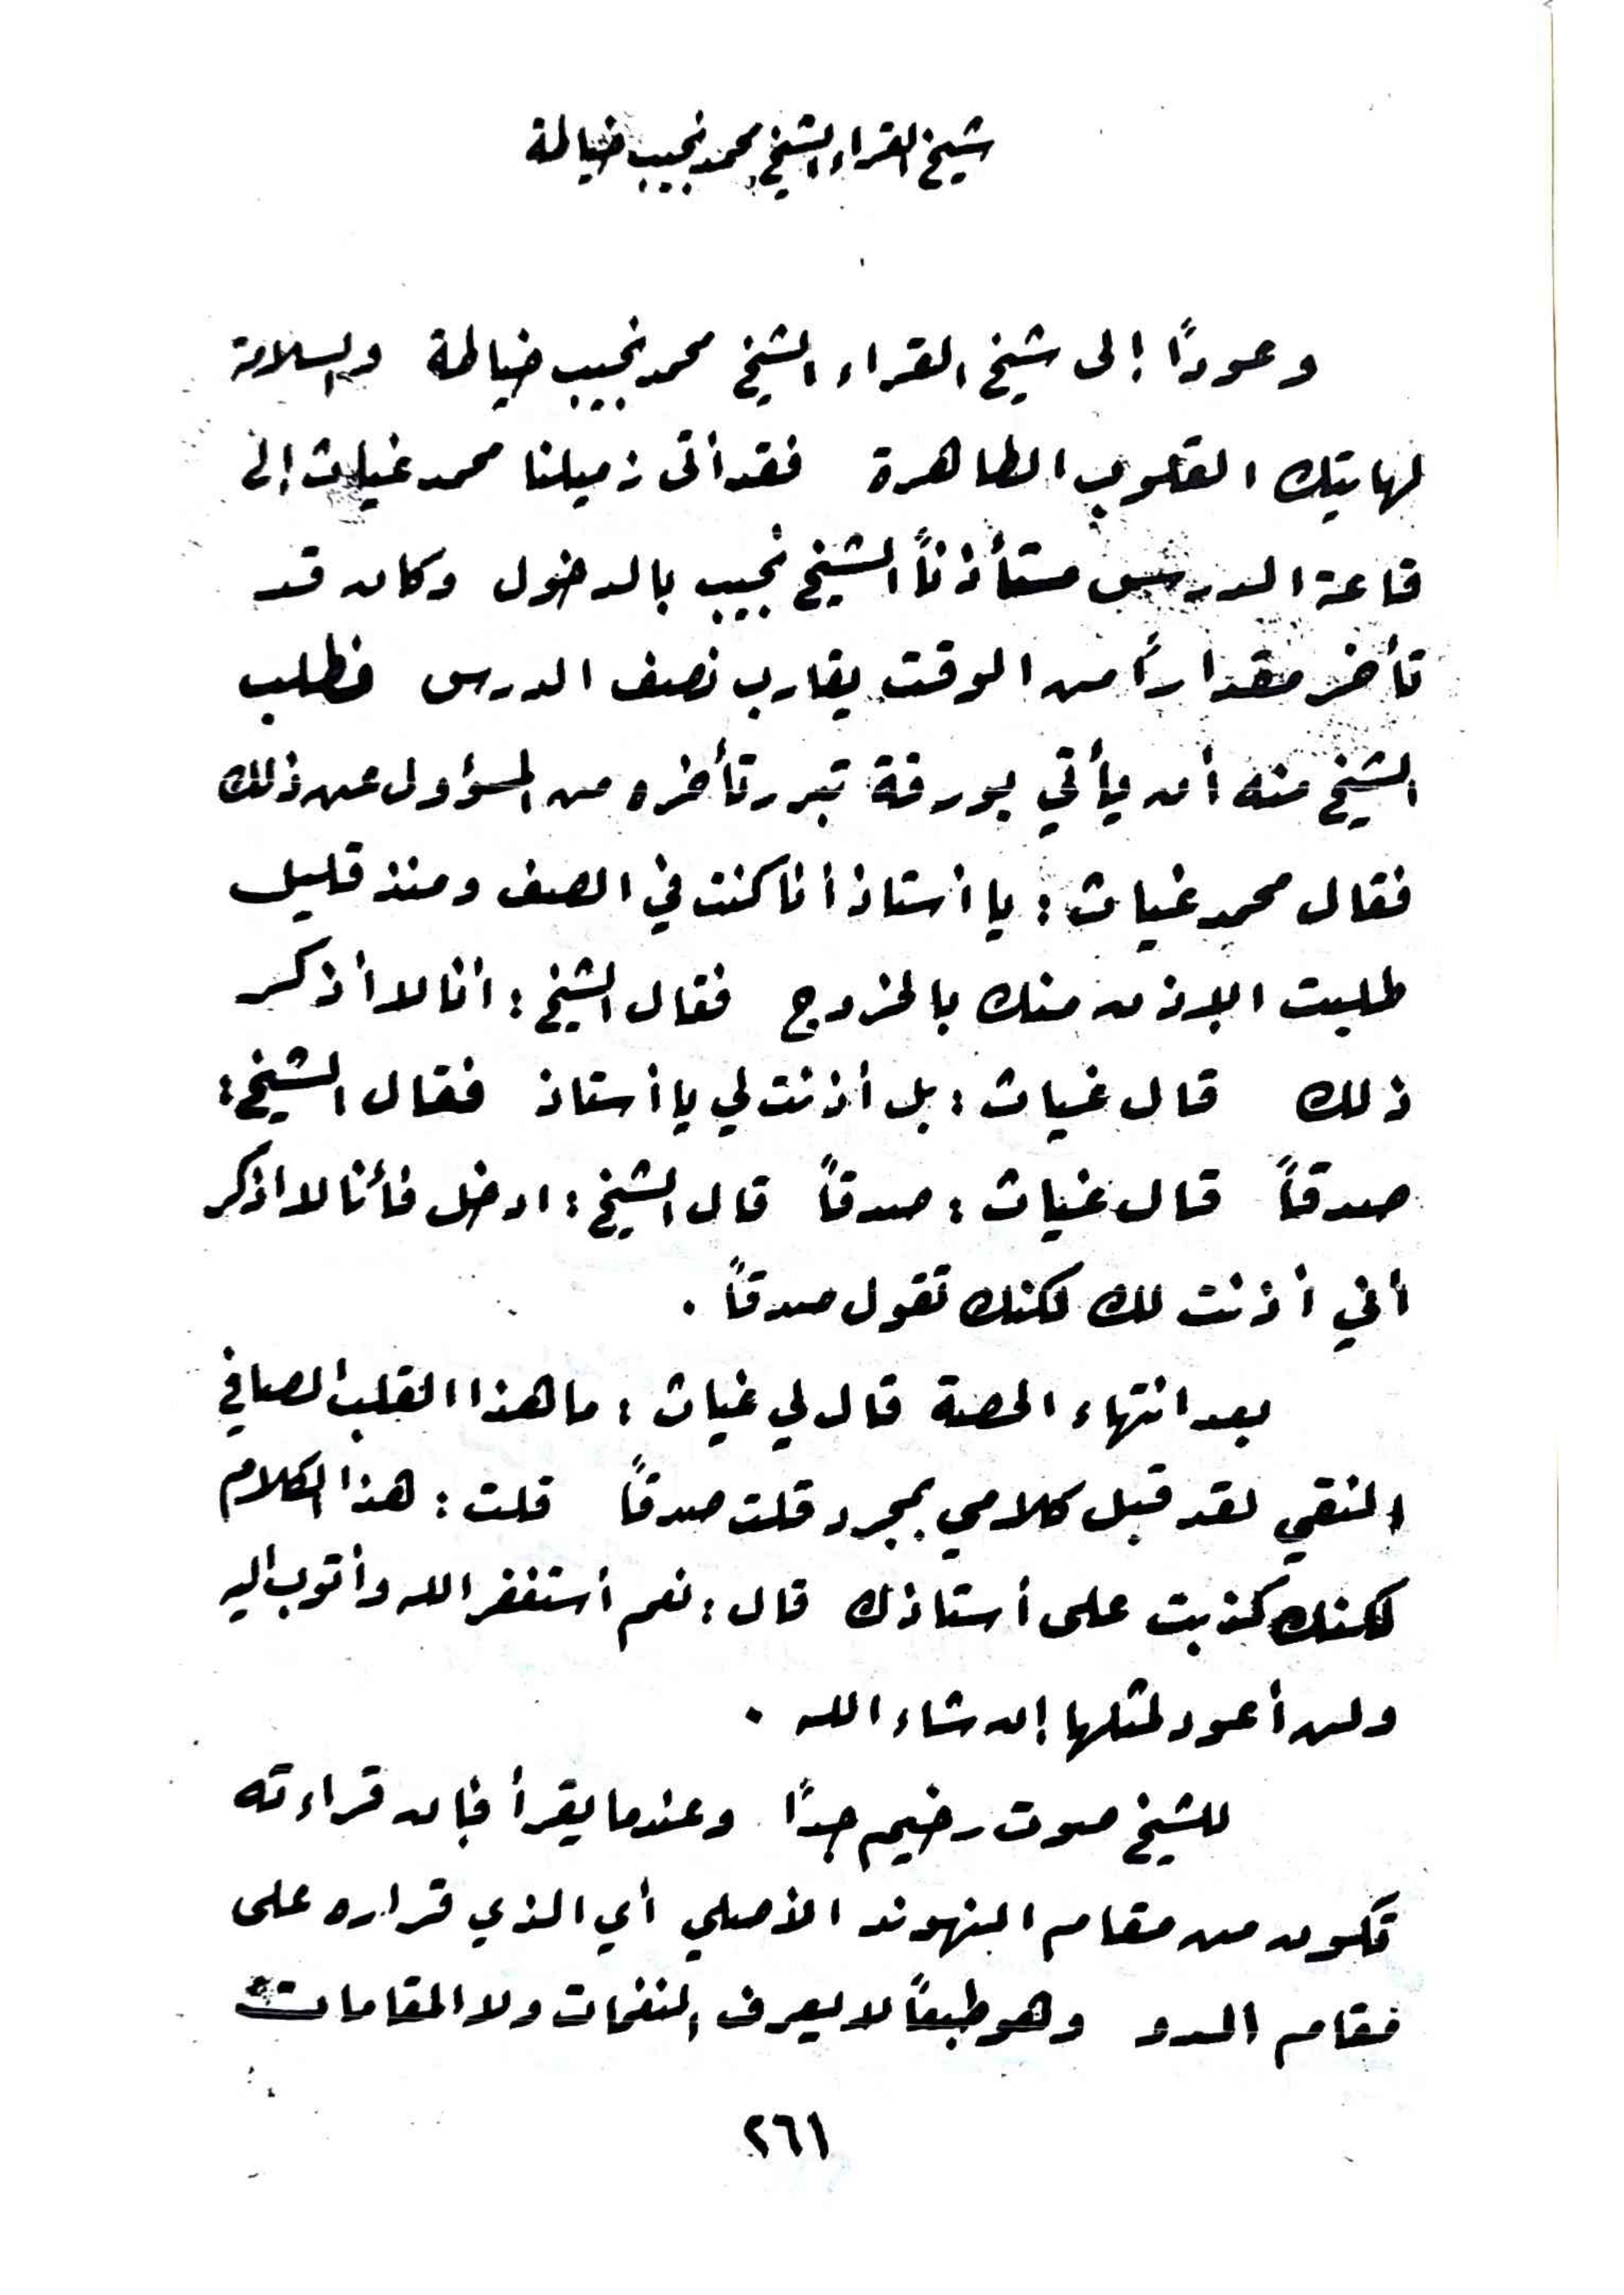 شيخ القراء الشيخ محمد نجيب خياطة
وعوداً إلى شيخ القراء الشيخ محمد نجيب خياطة والسلامة
لهاتيك القلوب الطاهرة فقد أتى زميلنا محمد غياث إلى
قاعة الدرس مستأذناً الشيخ نجيب بالدخول وكان قد
تأخر مقداراً من الوقت يقارب نصف الدرس فطلب
الشيخ منه أن يأتي بورقة تبرر تأخره من المسؤول عن ذلك
فقال محمد غياث : يا أستاذ أنا كنت في الصف ومنذ قليل
طلبت الإذن منك بالخروج فقال الشيخ : أنا لا أذكر
ذلك قال غياث : بل أذنت لي يا أستاذ فقال الشيخ :
صدقاً قال غياث : صدقاً قال الشيخ : ادخل فأنا لا أذكر
أني أذنت لك لكنك تقول صدقاً .
بعد انتهاء الحصة قال لي غياث : ما هذا القلب الصافي
النقي لقد قبل كلامي بمجرد قلت صدقاً قلت : هذا الكلام
لكنك كذبت على أستاذك قال : نعم أستغفر الله وأتوب إليه
ولن أعود لمثلها إن شاء الله .
للشيخ صوت رخيم جداً وعندما يقرأ فإن قراءته
تكون من مقام النهوند الأصلي أي الذي قراره على
مقام الدو وهو طبعاً لا يعرف النغمات ولا المقامات
٢٦١